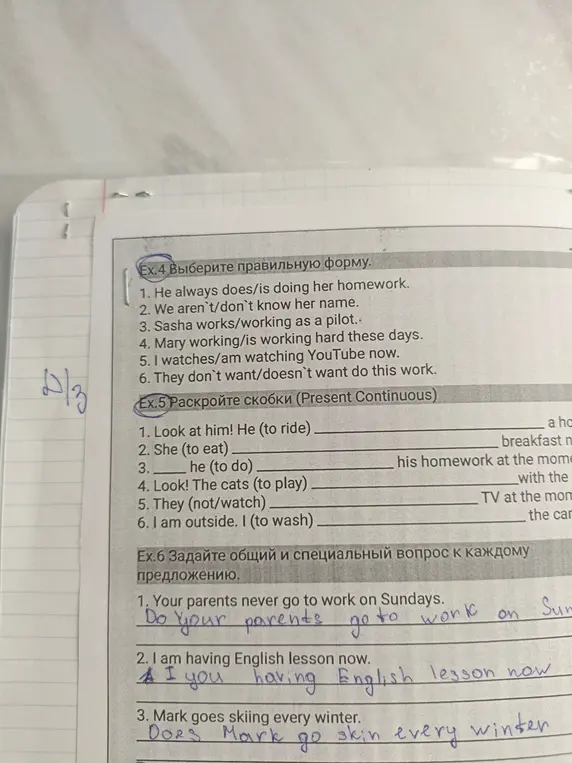 Ex.4 Выберите правильную форму.
1. He always does/is doing her homework.
2. We aren`t/don`t know her name.
3. Sasha works/working as a pilot.
4. Mary working/is working hard these days.
5. I watches/am watching YouTube now.
6. They don`t want/doesn`t want do this work.
D/з
Ex.5 Раскройте скобки (Present Continuous)
1. Look at him! He (to ride) ____________ a
2. She (to eat) ____________ breakfast
3. _____ he (to do) ____________ his homework at the
4. Look! The cats (to play) ____________ with the
5. They (not/watch) ____________ TV at the
6. I am outside. I (to wash) ____________ the
Ex.6 Задайте общий и специальный вопрос к каждому
предложению.
1. Your parents never go to work on Sundays.
Do your parents go to work on
2. I am having English lesson now.
I you having English lesson now
3. Mark goes skiing every winter.
Does Mark go skin every winter